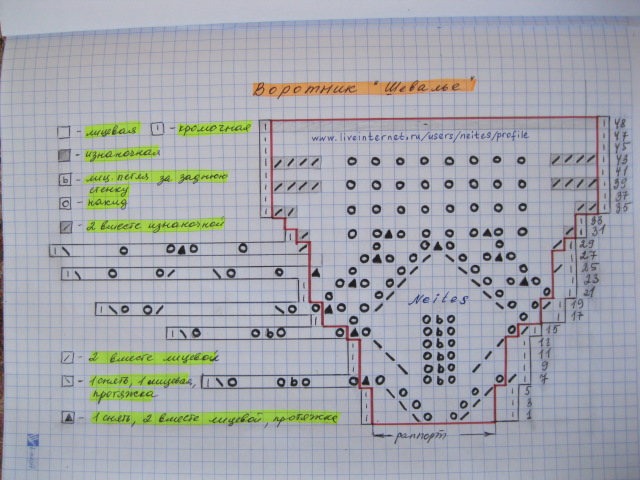 Воротник "Шевалье"
- лицевая
- кромочная
- изнаночная
- лиц. петля за заднюю
стенку
- накид
- 2 вместе изнаночной
- 2 вместе лицевой
- 1 снять, 1 лицевая,
протяжка
- 1 снять, 2 вместе лицевой, протяжка
www.liveinternet.ru/users/neites/profile
Neites
раппорт
48
47
45
43
41
39
37
35
33
31
29
27
25
23
21
19
17
15
13
11
9
7
5
3
1